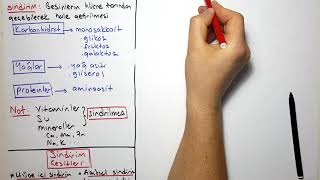 sindirim: Besinlerin hücre zarından
geçebilecek hale getirilmesi
Karbonhidrat → monosakkait
• glikoz
• früktoz
• galaktoz
Yağlar → • yağ asit
• gliserol
proteinler → aminoasit
Not: Vitaminler
Su
mineraller
Ca, Mg, Zn
Na, K...
Sindirilmez
Sindirim
Çeşitleri